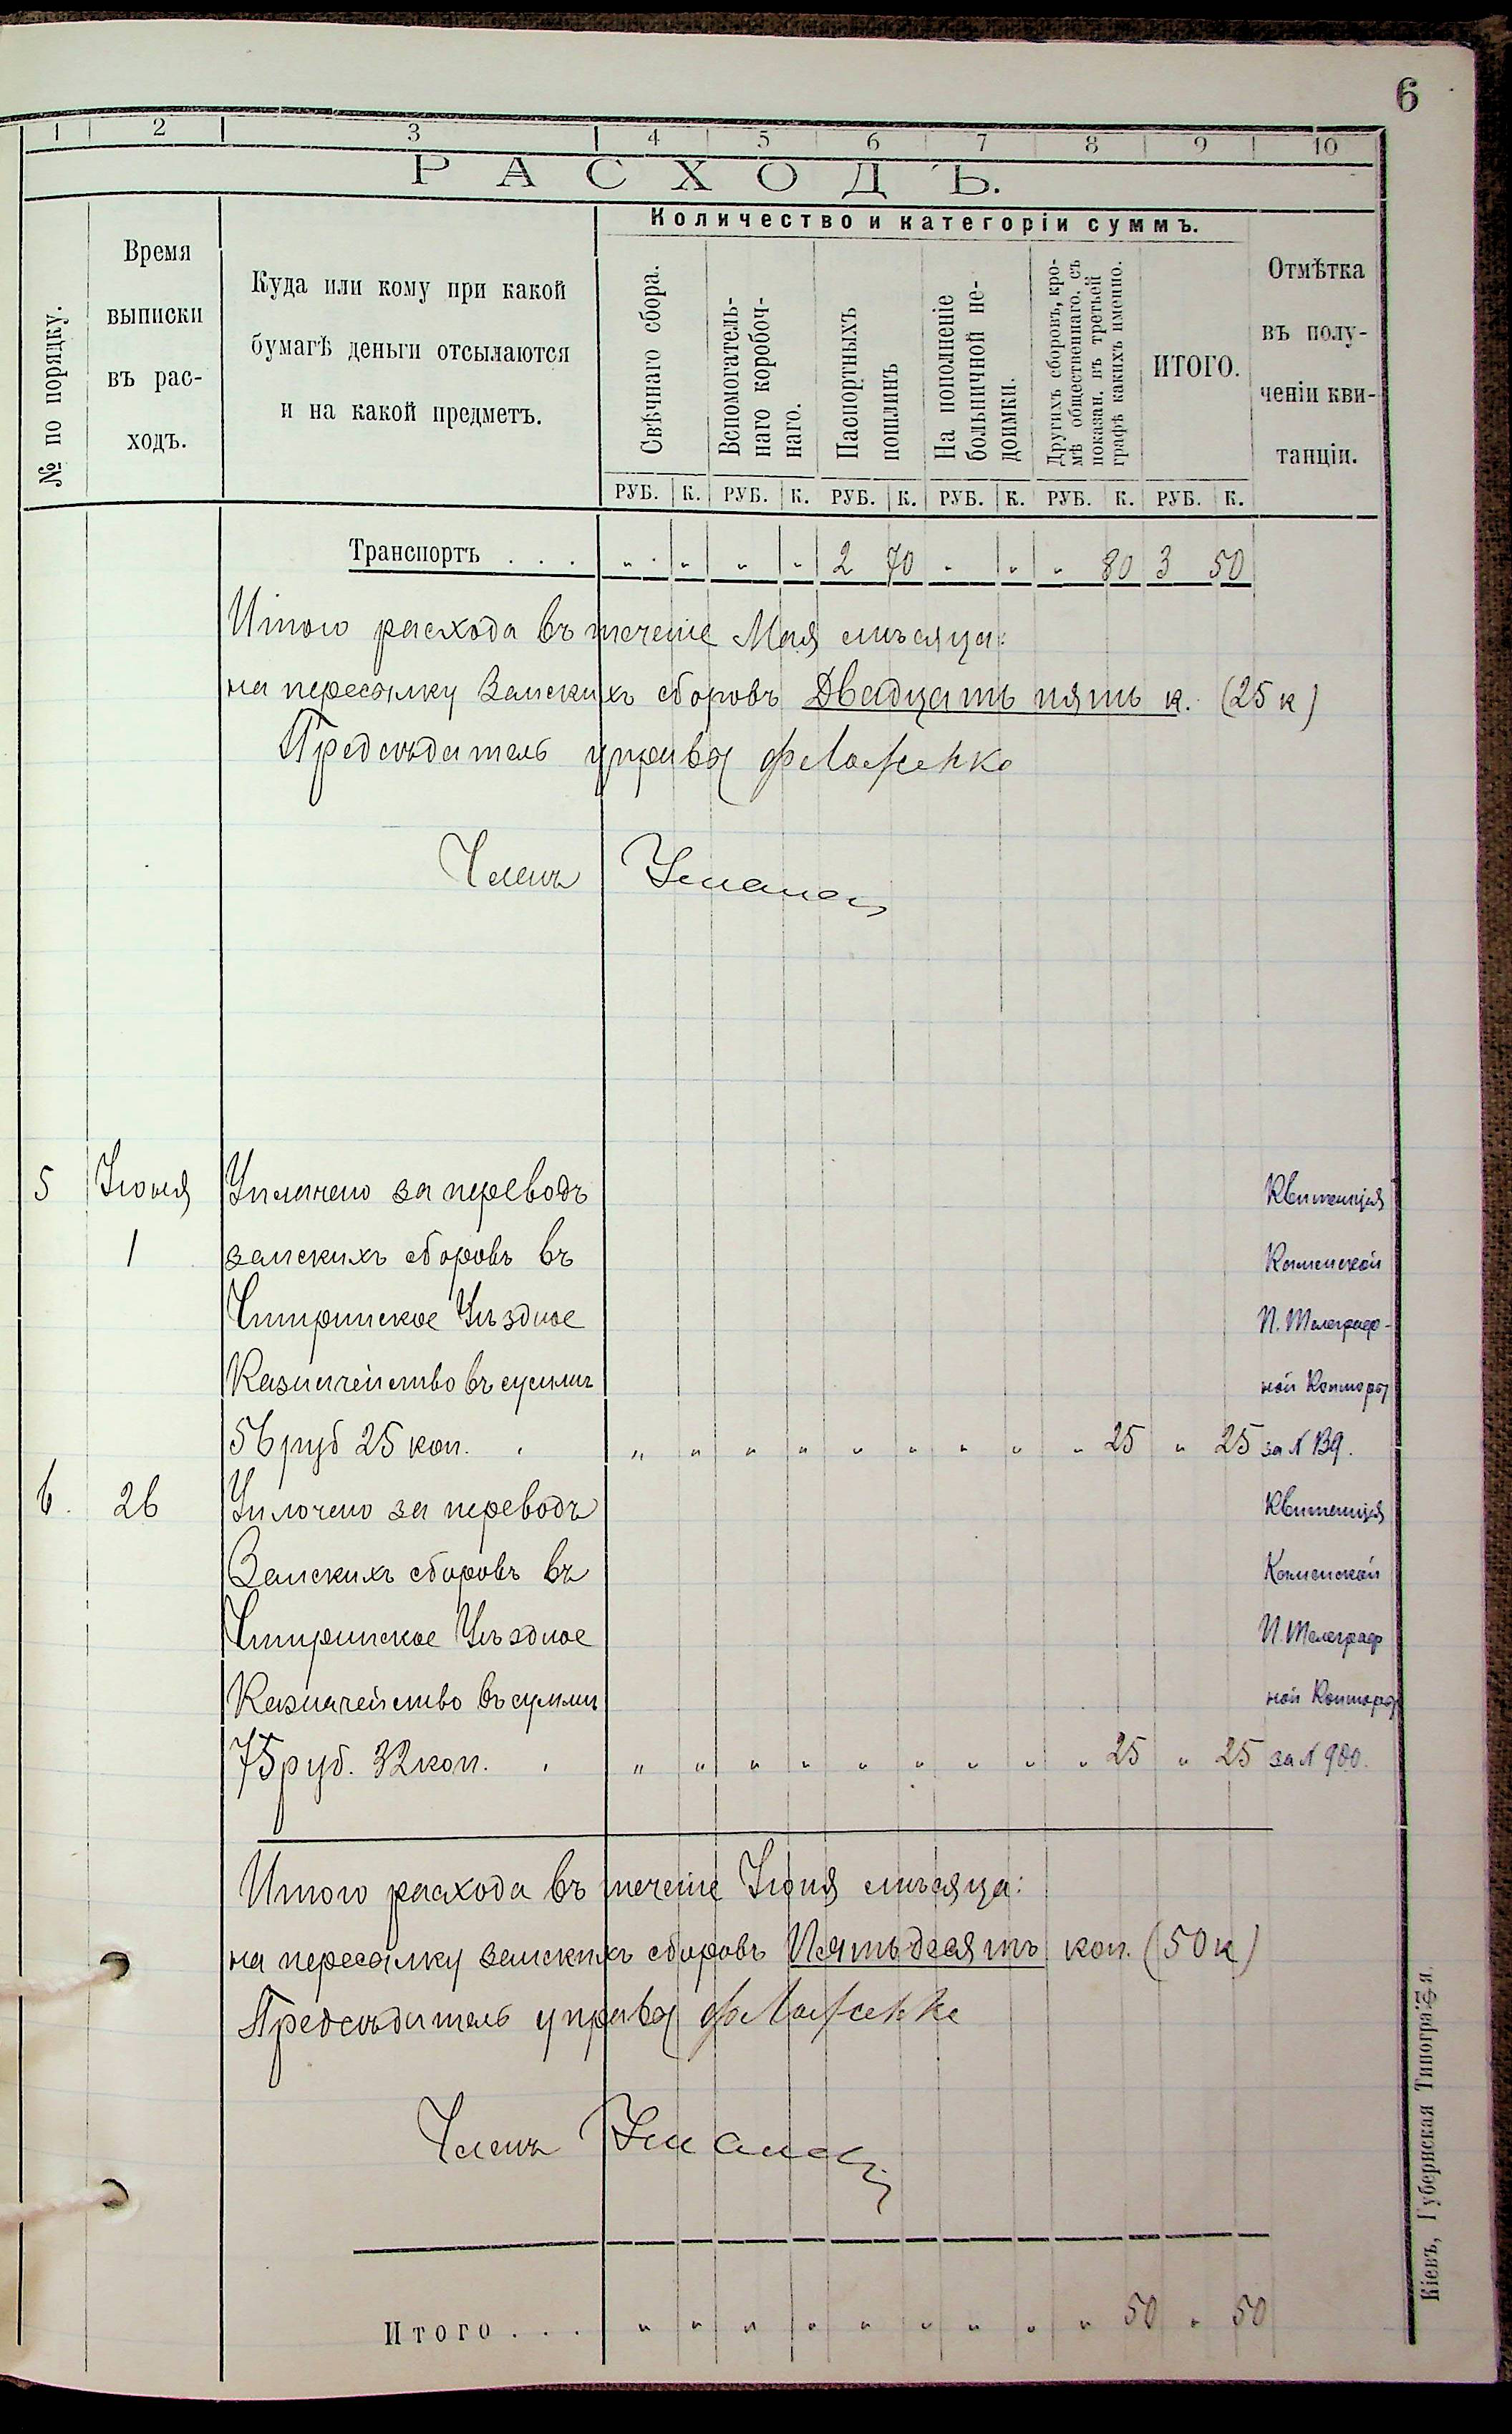 6
1 2 3 4 5 6 7 8 9 10
РАСХОДЪ.
№ по порядку.
Время
выписки
въ рас-
ходъ.
Куда или кому при какой
бумагѣ деньги отсылаются
и на какой предметъ.
Количество и категоріи суммъ.
Свѣчнаго сбора.
Вспомогатель-
наго коробоч-
наго.
Паспортныхъ
пошлинъ
На пополненіе
больничной не-
доимки.
Другихъ сборовъ, кро-
мѣ общественнаго. съ
показан. въ третьей
графѣ какихъ именно.
ИТОГО.
Отмѣтка
въ полу-
ченіи кви-
танціи.
РУБ. К. РУБ. К. РУБ. К. РУБ. К. РУБ. К. РУБ. К.
Транспортъ . . . „ „ „ „ 2 70 „ „ „ 80 3 50
Итого расхода въ теченіе Мая мѣсяца:
на пересылку Земскихъ сборовъ Двадцать пять к. (25 к)
Предсѣдатель управы
Членъ
5 Іюня Уплачено за переводъ Квитанція
1 земскихъ сборовъ въ Каменской
Чигиринское Уѣздное П. Телеграф-
Казначейство въ суммѣ ной Конторы
56 руб 25 коп. „ „ „ „ „ „ „ „ „ 25 „ 25 за №
6. 26 Уплочено за переводъ Квитанція
Земскихъ сборовъ въ Каменской
Чигиринское Уѣздное П. Телеграф
Казначейство въ суммѣ ной Конторы
75 руб. 32 коп. „ „ „ „ „ „ „ „ „ 25 „ 25 за № 900.
Итого расхода въ теченіе Іюня мѣсяца:
на пересылку земскихъ сборовъ Пятьдесятъ коп. (50 к)
Предсѣдатель управы
Членъ
Итого . . . „ „ „ „ „ „ „ „ „ 50 „ 50
Кіевъ, Губернская Типографія.